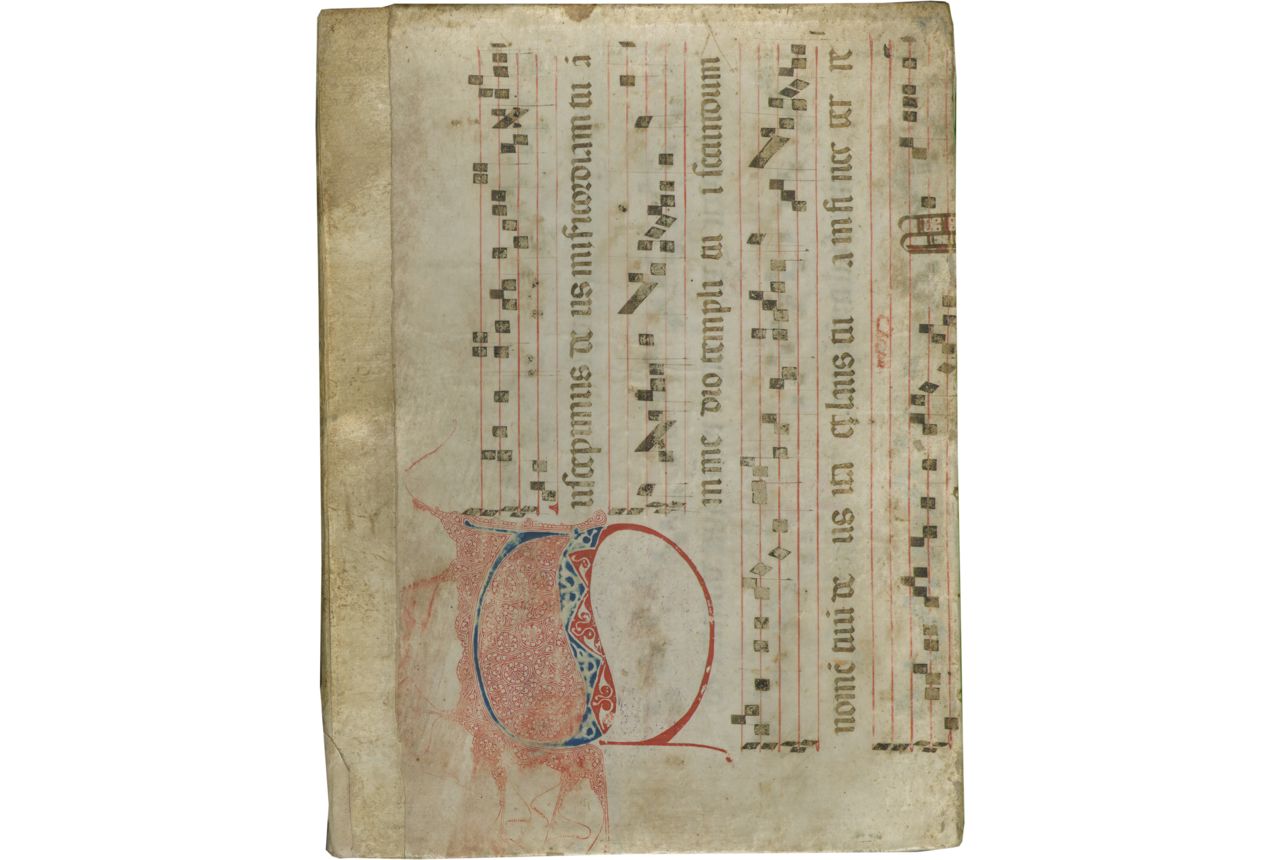 Suscepimus de us misicordiam tu ā
in me dio templi tu i secundum
nomē tuū de us ita laus tu a in fi nes ter re